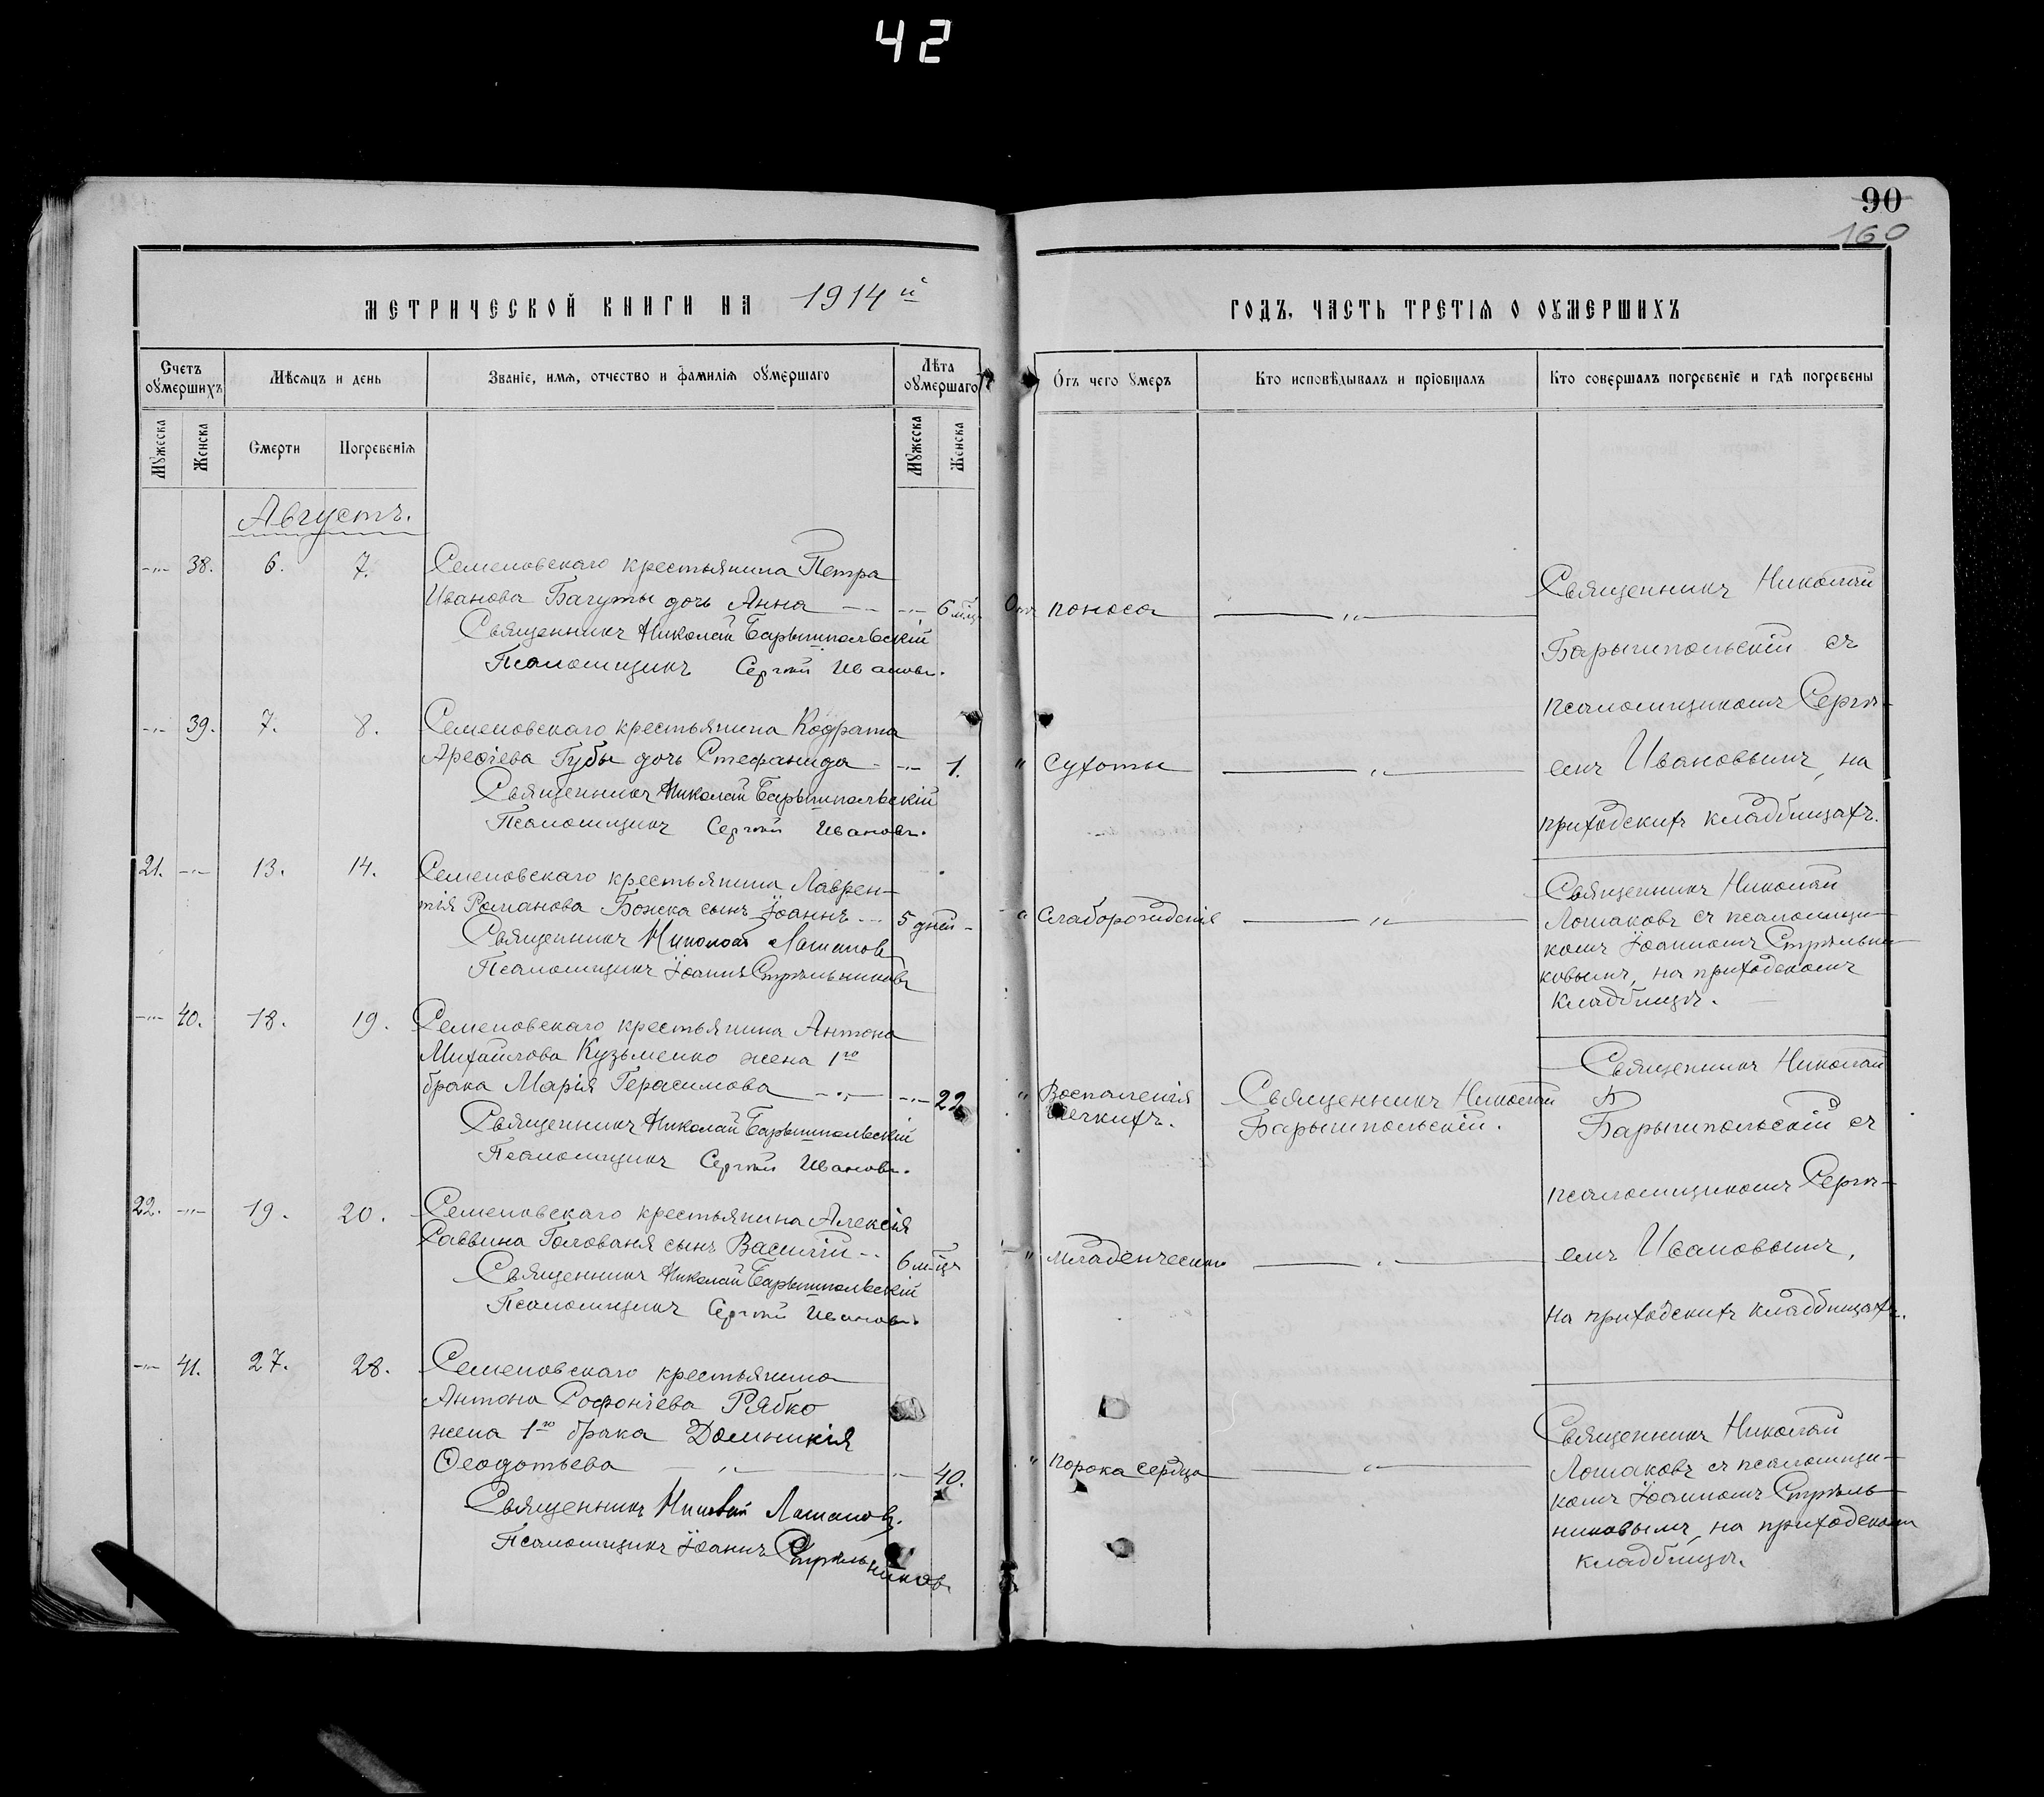 42
90
160
МЕТРИЧЕСКОЙ КНИГИ НА 1914й
ГОДЪ, ЧАСТЬ ТРЕТІѦ О ОУМЕРШИХЪ
Счетъ оумершихъ
Мѣсѧцъ и день
Званіе, имѧ, отчество и фамиліѧ оумершаго
Лѣта оумершаго
Отъ чего умеръ
Кто исповѣдывалъ и пріобщалъ
Кто совершалъ погребеніе и гдѣ погребены
Мужеска
Женска
Смерти
Погребеніѧ
Мужеска
Женска
Августъ.
-„- 38. 6. 7. Семеновскаго крестьянина Петра
Иванова Багуты дочь Анна -„- 6 мѣц. Отъ поноса -„-
Священникъ Николай Барышпольскій
Псаломщикъ Сергѣй Ивановъ.
Священникъ Николай
Барышпольскій съ
псаломщикомъ Сергѣ-
емъ Ивановымъ, на
приходскихъ кладбищахъ.
-„- 39. 7. 8. Семеновскаго крестьянина Кодрата
Арефіева Губы дочь Стефанида -„- 1. „ Сухоты -„-
Священникъ Николай Барышпольскій
Псаломщикъ Сергѣй Ивановъ.
21. -„- 13. 14. Семеновскаго крестьянина Лаврен-
тія Романова Божка сынъ Іоаннъ 5 дней - „ Слаборожденія -„-
Священникъ Николай Лошаков
Псаломщикъ Іоаннъ Стрѣльниковъ
Священникъ Николай
Лошаковъ съ псаломщи-
комъ Іоанномъ Стрѣльни-
ковымъ, на приходскомъ
кладбищѣ.
-„- 40. 18. 19. Семеновскаго крестьянина Антона
Михайлова Кузьменко жена 1го
брака Марія Герасимова -„- -„- 22 „ Воспаленія
легкихъ.
Священникъ Николай
Барышпольскій.
Священникъ Николай Барышпольскій
Псаломщикъ Сергѣй Ивановъ.
Священникъ Николай
Б
Барышпольскій съ
псаломщикомъ Сергѣ-
емъ Ивановымъ,
на приходскихъ кладбищахъ.
22. -„- 19. 20. Семеновскаго крестьянина Алексія
Саввина Голованя сынъ Василій 6 м-цъ „ Младенческаго -„-
Священникъ Николай Барышпольскій
Псаломщикъ Сергѣй Ивановъ.
-„- 41. 27. 28. Семеновскаго крестьянина
Антона Софоніева Рябко
жена 1го брака Домникія
Ѳеодотьева -„- - 40. „ порока сердца -„-
Священникъ Николай Лошаковъ.
Псаломщикъ Іоаннъ Стрѣльников.
Священникъ Николай
Лошаковъ съ псаломщи-
комъ Іоанномъ Стрѣль-
никовымъ, на приходскомъ
кладбищѣ.